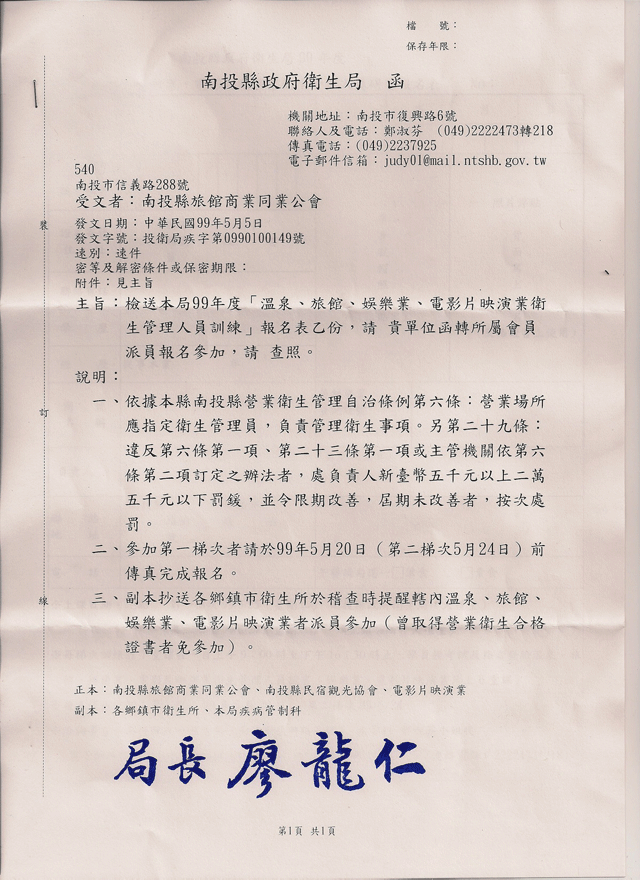 檔　　號：
保存年限：
南投縣政府衛生局　函
機關地址：南投市復興路6號
聯絡人及電話：鄭淑芬　(049)2222473轉218
傳真電話：(049)2237925
電子郵件信箱：judy01@mail.ntshb.gov.tw
540
南投市信義路288號
受文者：南投縣旅館商業同業公會
發文日期：中華民國99年5月5日
發文字號：投衛局疾字第0990100149號
速別：速件
密等及解密條件或保密期限：
附件：見主旨
主旨：檢送本局99年度「溫泉、旅館、娛樂業、電影片映演業衛
生管理人員訓練」報名表乙份，請　貴單位函轉所屬會員
派員報名參加，請　查照。
說明：
一、依據本縣南投縣營業衛生管理自治條例第六條：營業場所
應指定衛生管理員，負責管理衛生事項。另第二十九條：
違反第六條第一項、第二十三條第一項或主管機關依第六
條第二項訂定之辦法者，處負責人新臺幣五千元以上二萬
五千元以下罰鍰，並令限期改善，屆期未改善者，按次處
罰。
二、參加第一梯次者請於99年5月20日（第二梯次5月24日）前
傳真完成報名。
三、副本抄送各鄉鎮市衛生所於稽查時提醒轄內溫泉、旅館、
娛樂業、電影片映演業者派員參加（曾取得營業衛生合格
證書者免參加）。
正本：南投縣旅館商業同業公會、南投縣民宿觀光協會、電影片映演業
副本：各鄉鎮市衛生所、本局疾病管制科
局長廖龍仁
第1頁 共1頁
裝
訂
線